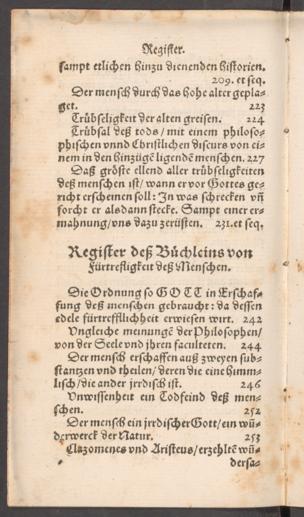 Register.
sampt etlichen hinzu dienenden historien.
209. et seq.
Der mensch durch das hohe alter gepla-
get. 223
Trübseligkeit der alten greisen. 224
Trübsal deß tods / mit einem philoso-
phischen vnnd Christlichen discurs von ei-
nem in den hinzügẽ ligendẽ menschen. 227
Daß gröste ellend aller trübseligkeiten
deß menschen ist / wann er vor Gottes ge-
richt erscheinen soll: In was schrecken vñ
forcht er als dann stecke. Sampt einer er-
mahnung / vns dazu zerüsten. 231. et seq.
Register deß Büchleins von
Fürtrefligkeit deß Menschen.
Die Ordnung so GOTT in Erschaf-
fung deß menschen gebraucht: da dessen
edele fürtrefflichheit erwiesen wirt. 242
Vngleiche meinungẽ der Philosophen /
von der Seele vnd jhren faculteten. 244
Der mensch erschaffen auß zweyen sub-
stantzen vnd theilen / deren die eine himm-
lisch / die ander jrrdisch ist. 246
Vnwissenheit ein Todfeind deß men-
schen. 252
Der mensch ein jrrdischer Gott / ein wũ-
derwerck der Natur. 253
Clazomenes vnd Aristeus / erzehltẽ wũ-
dersa-